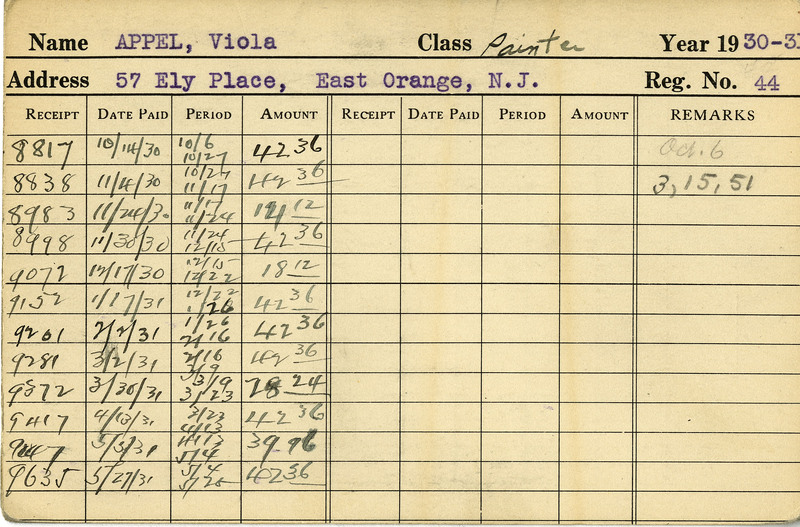 Name APPEL, Viola Class Painter Year 1930-31
Address 57 Ely Place, East Orange, N.J. Reg. No. 44
RECEIPT DATE PAID PERIOD AMOUNT RECEIPT DATE PAID PERIOD AMOUNT REMARKS
8817 10/14/30 10/6 10/27 42 36 Oct. 6
8838 11/4/30 10/27 11/17 42 36 3, 15, 51
8983 11/24/30 11/17 11/24 12
8998 11/30/30 11/24 12/15 42 36
9072 12/17/30 12/15 12/22 18 12
9152 1/17/31 12/22 1/26 42 36
9201 2/2/31 1/26 2/16 42 36
9281 3/2/31 2/16 42 36
9372 3/30/31 3/23 78 24
9417 4/13/31 3/23 4/13 42 36
5/5/31 4/13 5/4 39 96
9635 5/27/31 5/4 5/25 42 36